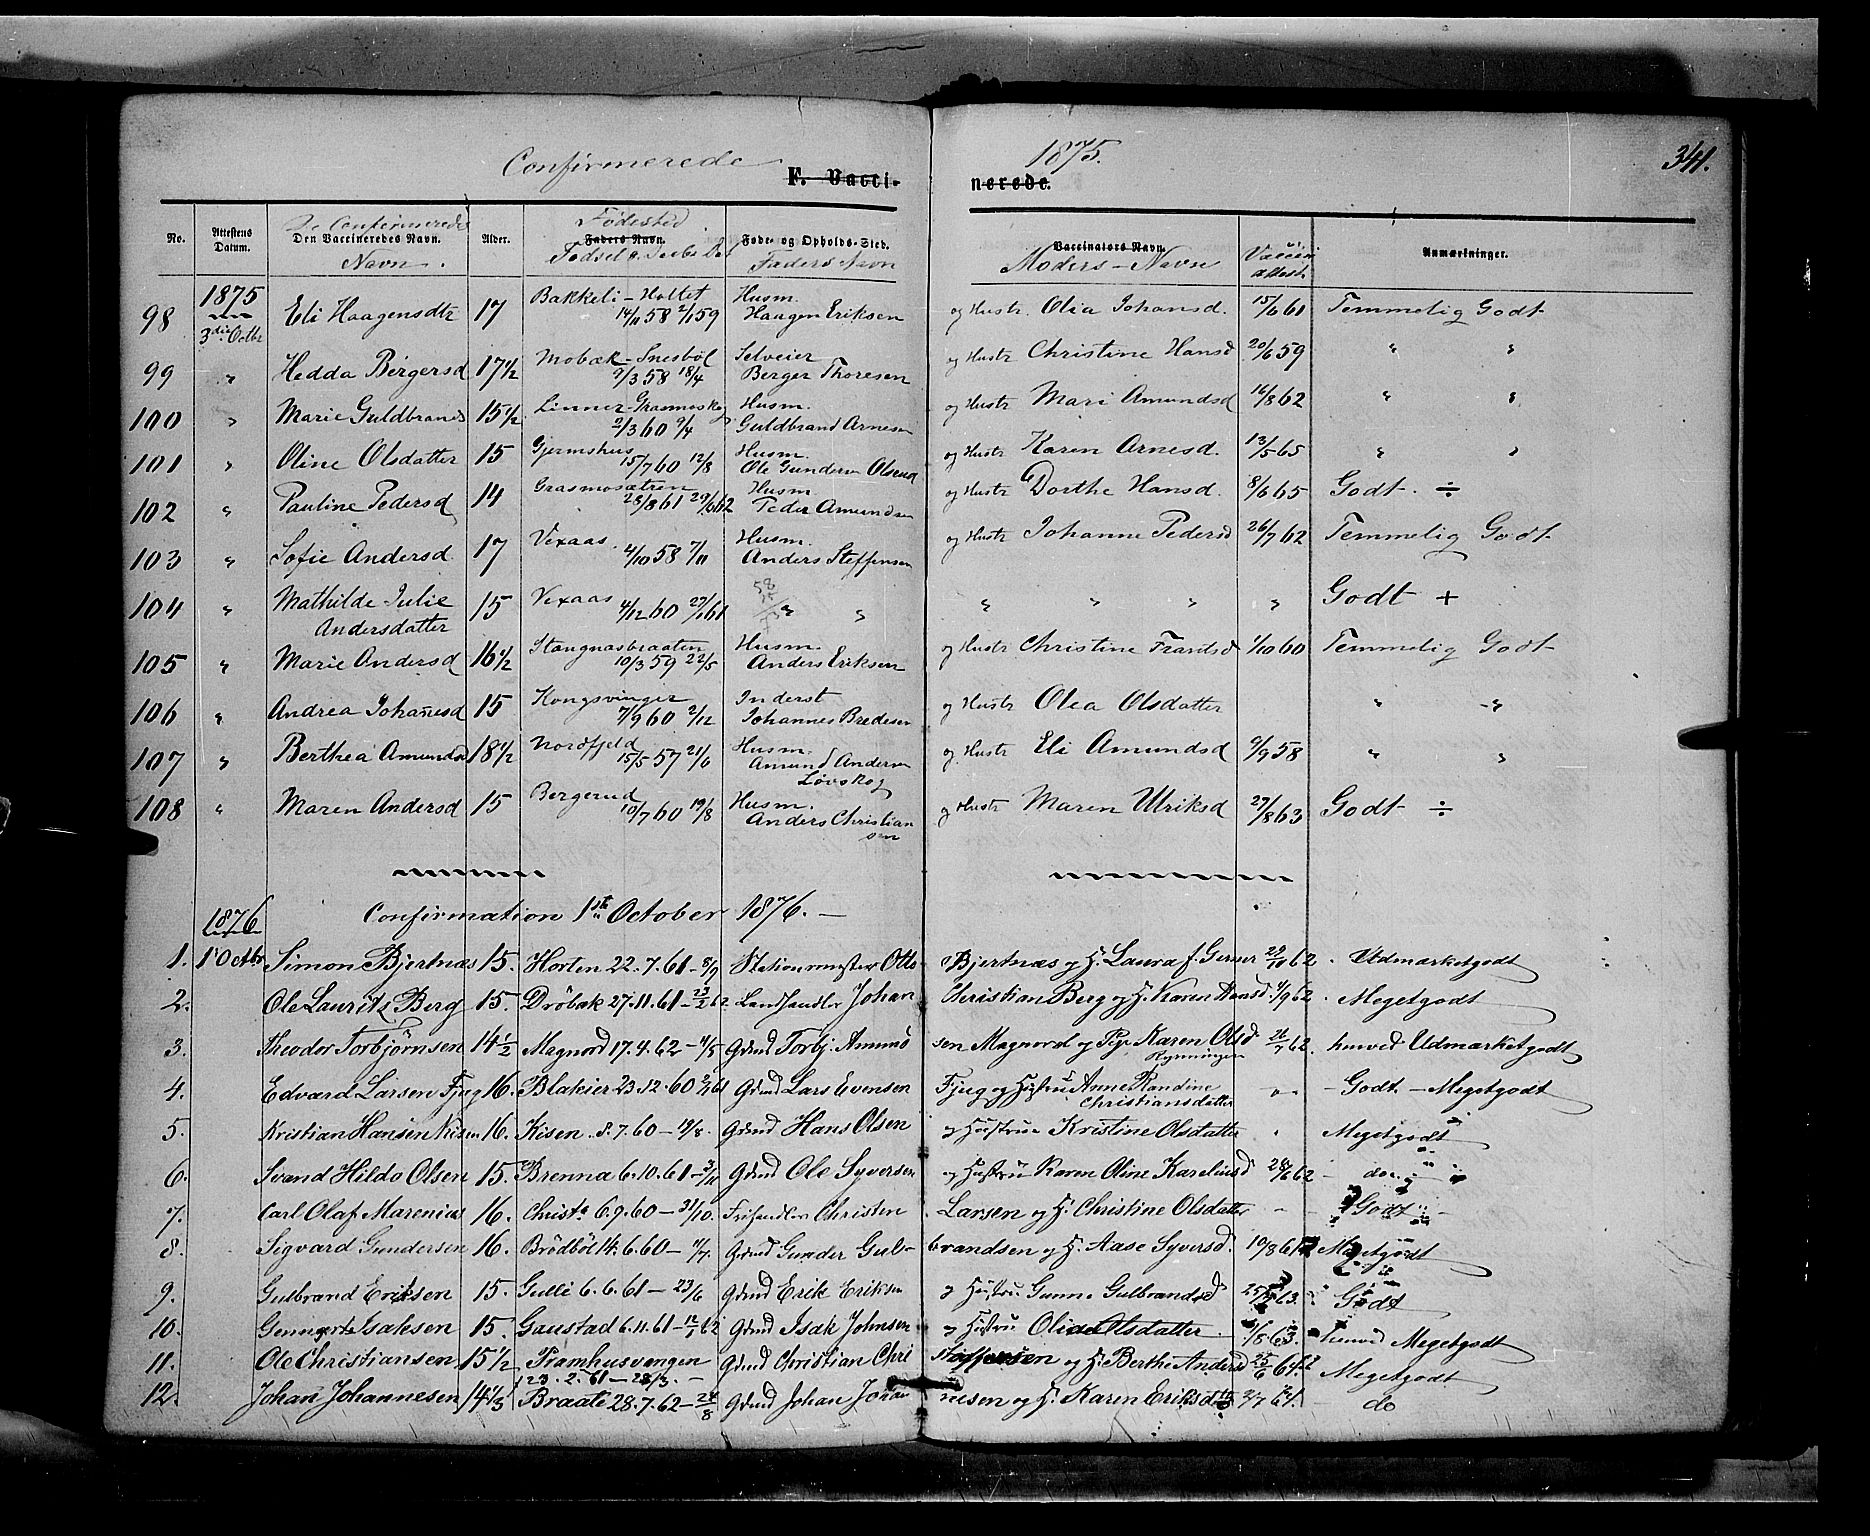 Confirmerede 1875. 341.
F. Vaccinerede.
No. Attestens Datum. De Confirmeredes Den Vaccineredes Navn. Navn. Alder. Fødested Faders Navn. Fødsel Daabs Dat Føde- og Opholds-Sted. Faders Navn Vaccinators Navn. Moders-Navn Vaccin attest. Anmærkninger.
1875
98 3die Octbr Eli Haagensdtr 17 Bakkeli-Holtet 14/11 58 2/1 59 Husm. Haagen Eriksen og Hustr. Olia Johansd. 15/6 61 Temmelig Godt
99 " Hedda Bergersd 17 1/2 Mobæk-Snesbøl 9/3 58 18/4 Selveier Berger Thoresen og Hustr Christine Hansd 20/6 59 " "
100 " Marie Guldbrands 15 1/2 Linner-Grasmoskog 2/3 60 9/4 Husm. Guldbrand Arnesen og Hustr Mari Amundsd 16/8 62 " "
101 " Oline Olsdatter 15 Gjermshus 15/7 60 12/8 Husm. Ole Gundersn Olsrud og Hustr Karen Arnesd. 13/5 65 " "
102 " Pauline Pedersd 14 Grasmosætren 28/8 61 29/6 62 Husm Peder Amundsen og Hustr Dorthe Hansd. 8/6 65 Godt. ÷
103 " Sofie Andersd 17 Vexaas 4/10 58 7/11 Husm. Anders Steffensen og Hustr Johanne Pedersd 26/7 62 Temmelig Godt
104 " Mathilde Julie Andersdatter 15 Vexaas 4/12 60 27/1 61 " " " " " " Godt +
105 " Marie Andersd 16 1/2 Stangnæsbraaten 10/3 59 22/5 Husm. Anders Eriksen og Hustr Christine Frandsd 1/10 60 Temmelig Godt
106 " Andrea Johañesd 15 Kongsvinger 7/9 60 2/12 Inderst Johannes Bredesen og Hustr Olea Olsdatter " "
107 " Berthea Amundsd 18 1/2 Nordfjeld 15/5 57 21/6 Husm. Amund Andersn Løvskog og Hustr Eli Amundsd 9/9 58 " "
108 " Maren Andersd 15 Bergerud 10/7 60 19/8 Husm. Anders Christiansen og Hustr Maren Ulriksd 27/8 63 Godt ÷
1876 Confirmation 1ste October 1876.
1. 1 Octbr Simon Bjertnæs 15. Horten 22.7.61-8/9 Stationsmester Otto Bjertnæs og H. Laura f. Gerner 29/10 62 Udmærketgodt
2. Ole Lauritz Berg 15. Drøbak 27.11.61-23/2 62. Landhandler Johan Christian Berg og H. Karen Hansd. 4/9 62. Megetgodt
3. Theodor Torbjørnsen 14 1/2 Magnord 17.4.62-11/5 Grdmd Torbj. Amundsen Magnord og Karen Olsd Rynningen 26/7 62. henved Udmærketgodt
4. Edvard Larsen Fjug 16. Blakier 23.12.60 2/2 61 Grdmd Lars Evensen Fjug og Hustru Anne Randine Christiansdatter Godt-Megetgodt
5. Kristian Hansen Kisen 16. Kisen 8.7.60-19/8. Grdmd Hans Olsen og Hustrue Kristine Olsdatter Megetgodt
6. Svand Hildo Olsen 15. Brenna 6.10.61-3/11 Grdmd Ole Syversen og Hustru Karen Oline Kareliusd 28/6 62 do
7. Carl Olaf Marenius 16. Christa 6.9.60-31/10. Frihandler Christen Larsen og H. Christine Olsdatter Godt
8. Sigvard Gundersen 16. Brødbøl 14.6.60-11/7. Grdmd Gunder Gulbrandsen og H. Aase Syversd. 19/8 61 Megetgodt
9. Gulbrand Eriksen 15. Gulli 6.6.61-23/6 Grdmd Erik Eriksen og Hustru Gunne Gulbrandsd 63. Godt
10. Isaksen 15. Gaustad 6.11.61-12/1 62 Grdmd Isak Johnsen og Hustru Olsdatter. /8 63. henved Megetgodt
11. Ole Christiansen 15 1/2 Framhusvengen 23.2.61-28/3. Grdmd Christian Christoffersen og H. Berthe Andersd 25/6 64 Megetgodt
12. Johan Johannesen 14 1/3 Braate 28.7.62-24/8 Grdmd Johan Johannesen og H. Karen Eriksdtr 2/7 64. do